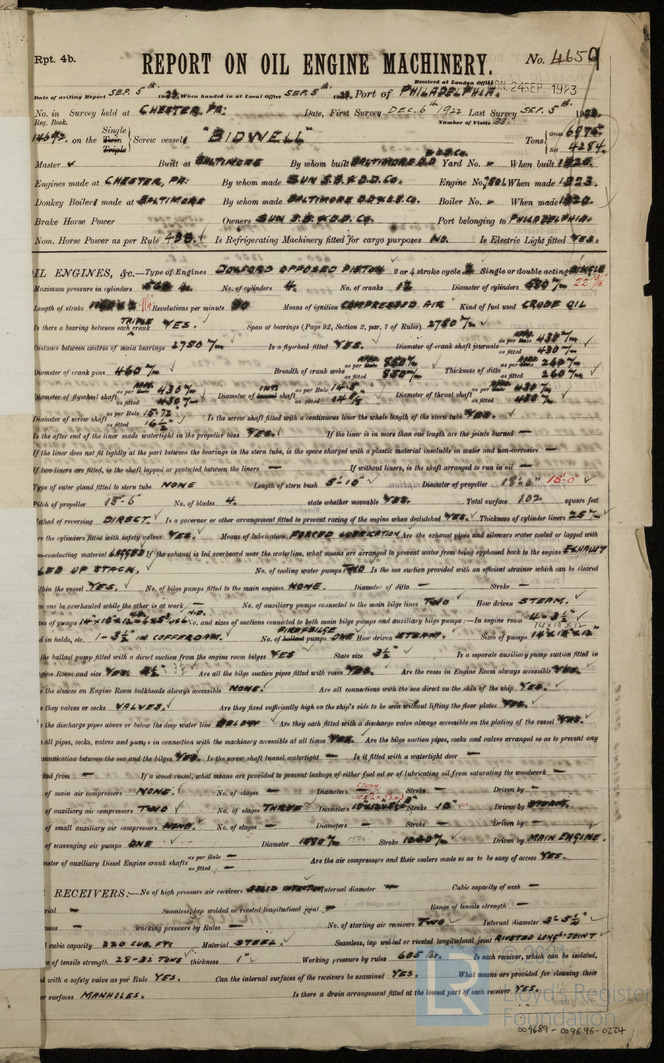 Rpt. 4b.
REPORT ON OIL ENGINE MACHINERY. No. 4659
Received at London Office MON 24 SEP. 1923
Date of writing Report SEP. 5th. 1923. When handed in at Local Office SEP. 5th. 1923. Port of PHILADELPHIA.
No. in Survey held at CHESTER, PA: Date, First Survey DEC. 6th 1922 Last Survey SEP. 5th.
Reg. Book. Number of Visits
14693. on the Single Twin Triple Screw vessel "BIDWELL" Tons Gross 6976 Net 4284.
Master ✓ Built at BALTIMORE By whom built Yard No. When built 1920.
Engines made at CHESTER, PA: By whom made SUN S.B. & D.D. Co. Engine No. When made 1923.
Donkey Boiler made at BALTIMORE By whom made BALTIMORE D.D. & S.B. Co. Boiler No. – When made 1920.
Brake Horse Power Owners SUN S.B. & D.D. Co. Port belonging to PHILADELPHIA.
Nom. Horse Power as per Rule Is Refrigerating Machinery fitted for cargo purposes NO. Is Electric Light fitted YES.
OIL ENGINES, &c.—Type of Engines DOXFORD OPPOSED PISTON 2 or 4 stroke cycle 2 Single or double acting SINGLE
Maximum pressure in cylinders No. of cylinders 4. No. of cranks 12 Diameter of cylinders 580 m/m 22 13/16
Length of stroke Revolutions per minute Means of ignition COMPRESSED AIR Kind of fuel used CRUDE OIL
Is there a bearing between each crank TRIPLE YES. Span of bearings (Page 92, Section 2, par. 7 of Rules) 2750 m/m
Distance between centres of main bearings 2750 m/m Is a flywheel fitted YES. Diameter of crank shaft journals as per Rule 430 m/m as fitted 430 m/m
Diameter of crank pins 460 m/m Breadth of crank webs as per Rule as fitted Thickness of ditto as per Rule 260 m/m as fitted 260 m/m
Diameter of flywheel shaft as per Rule 430 m/m as fitted 430 m/m Diameter of tunnel shaft as per Rule as fitted Diameter of thrust shaft as per Rule 430 m/m as fitted 430 m/m
Diameter of screw shaft as per Rule 15.72 as fitted Is the screw shaft fitted with a continuous liner the whole length of the stern tube YES.
Is the after end of the liner made watertight in the propeller boss YES. If the liner is in more than one length are the joints burned –
If the liner does not fit tightly at the part between the bearings in the stern tube, is the space charged with a plastic material insoluble in water and non-corrosive –
If two liners are fitted, is the shaft lapped or protected between the liners – If without liners, is the shaft arranged to run in oil –
Type of outer gland fitted to stern tube NONE Length of stern bush 5'-10" Diameter of propeller 15'-0"
Pitch of propeller 15'-6 No. of blades 4. state whether moveable YES. Total surface 102 square feet
Method of reversing DIRECT. Is a governor or other arrangement fitted to prevent racing of the engine when declutched YES. Thickness of cylinder liners
are the cylinders fitted with safety valves YES. Means of lubrication FORCED LUBRICATION Are the exhaust pipes and silencers water cooled or lagged with
non-conducting material LAGGED If the exhaust is led overboard near the waterline, what means are arranged to prevent water from being syphoned back to the engine EXHAUST
LED UP STACK. No. of cooling water pumps TWO Is the sea suction provided with an efficient strainer which can be cleared
within the vessel YES. No. of bilge pumps fitted to the main engines NONE. Diameter of ditto – Stroke –
can one be overhauled while the other is at work – No. of auxiliary pumps connected to the main bilge lines TWO How driven STEAM.
Sizes of pumps No. and sizes of suctions connected to both main bilge pumps and auxiliary bilge pumps:—In engine room 4-3½"
and in holds, etc. 1-3½ IN COFFERDAM. No. of ballast pumps FIRE & BILGE ONE How driven STEAM. Sizes of pumps 14 x 10 x 12"
Is the ballast pump fitted with a direct suction from the engine room bilges YES State size 3½" Is a separate auxiliary pump suction fitted in
Engine Room and size YES. 3½" Are all the bilge suction pipes fitted with roses YES. Are the roses in Engine Room always accessible YES.
Are the sluices on Engine Room bulkheads always accessible NONE. Are all connections with the sea direct on the skin of the ship YES.
Are they valves or cocks VALVES. Are they fixed sufficiently high on the ship's side to be seen without lifting the floor plates YES.
Are the discharge pipes above or below the deep water line BELOW Are they each fitted with a discharge valve always accessible on the plating of the vessel YES.
Are all pipes, cocks, valves and pumps in connection with the machinery accessible at all times YES. Are the bilge suction pipes, cocks and valves arranged so as to prevent any
communication between the sea and the bilges YES. Is the screw shaft tunnel watertight – Is it fitted with a watertight door –
worked from – If a wood vessel, what means are provided to prevent leakage of either fuel oil or of lubricating oil from saturating the woodwork –
No. of main air compressors NONE. No. of stages – Diameters – Stroke – Driven by –
No. of auxiliary air compressors TWO No. of stages THREE Diameters Stroke Driven by STEAM.
No. of small auxiliary air compressors NONE. No. of stages – Diameters – Stroke – Driven by –
No. of scavenging air pumps ONE Diameter Stroke Driven by MAIN ENGINE.
Diameter of auxiliary Diesel Engine crank shafts as per Rule – as fitted – Are the air compressors and their coolers made so as to be easy of access YES.
RECEIVERS:—No. of high pressure air receivers SOLID INJECTION Internal diameter – Cubic capacity of each –
Seamless, lap welded or riveted longitudinal joint – Range of tensile strength –
working pressure by Rules – No. of starting air receivers TWO Internal diameter 3'-5½"
cubic capacity 220 CUB. FT. Material STEEL. Seamless, lap welded or riveted longitudinal joint RIVETED LONG'L JOINT
of tensile strength 28-32 TONS thickness 1" Working pressure by rules 605 lbs. Is each receiver, which can be isolated,
fitted with a safety valve as per Rule YES. Can the internal surfaces of the receivers be examined YES. What means are provided for cleaning their
inner surfaces MANHOLES. Is there a drain arrangement fitted at the lowest part of each receiver YES.
LR
Lloyd's Register
Foundation
009689-009696-0224